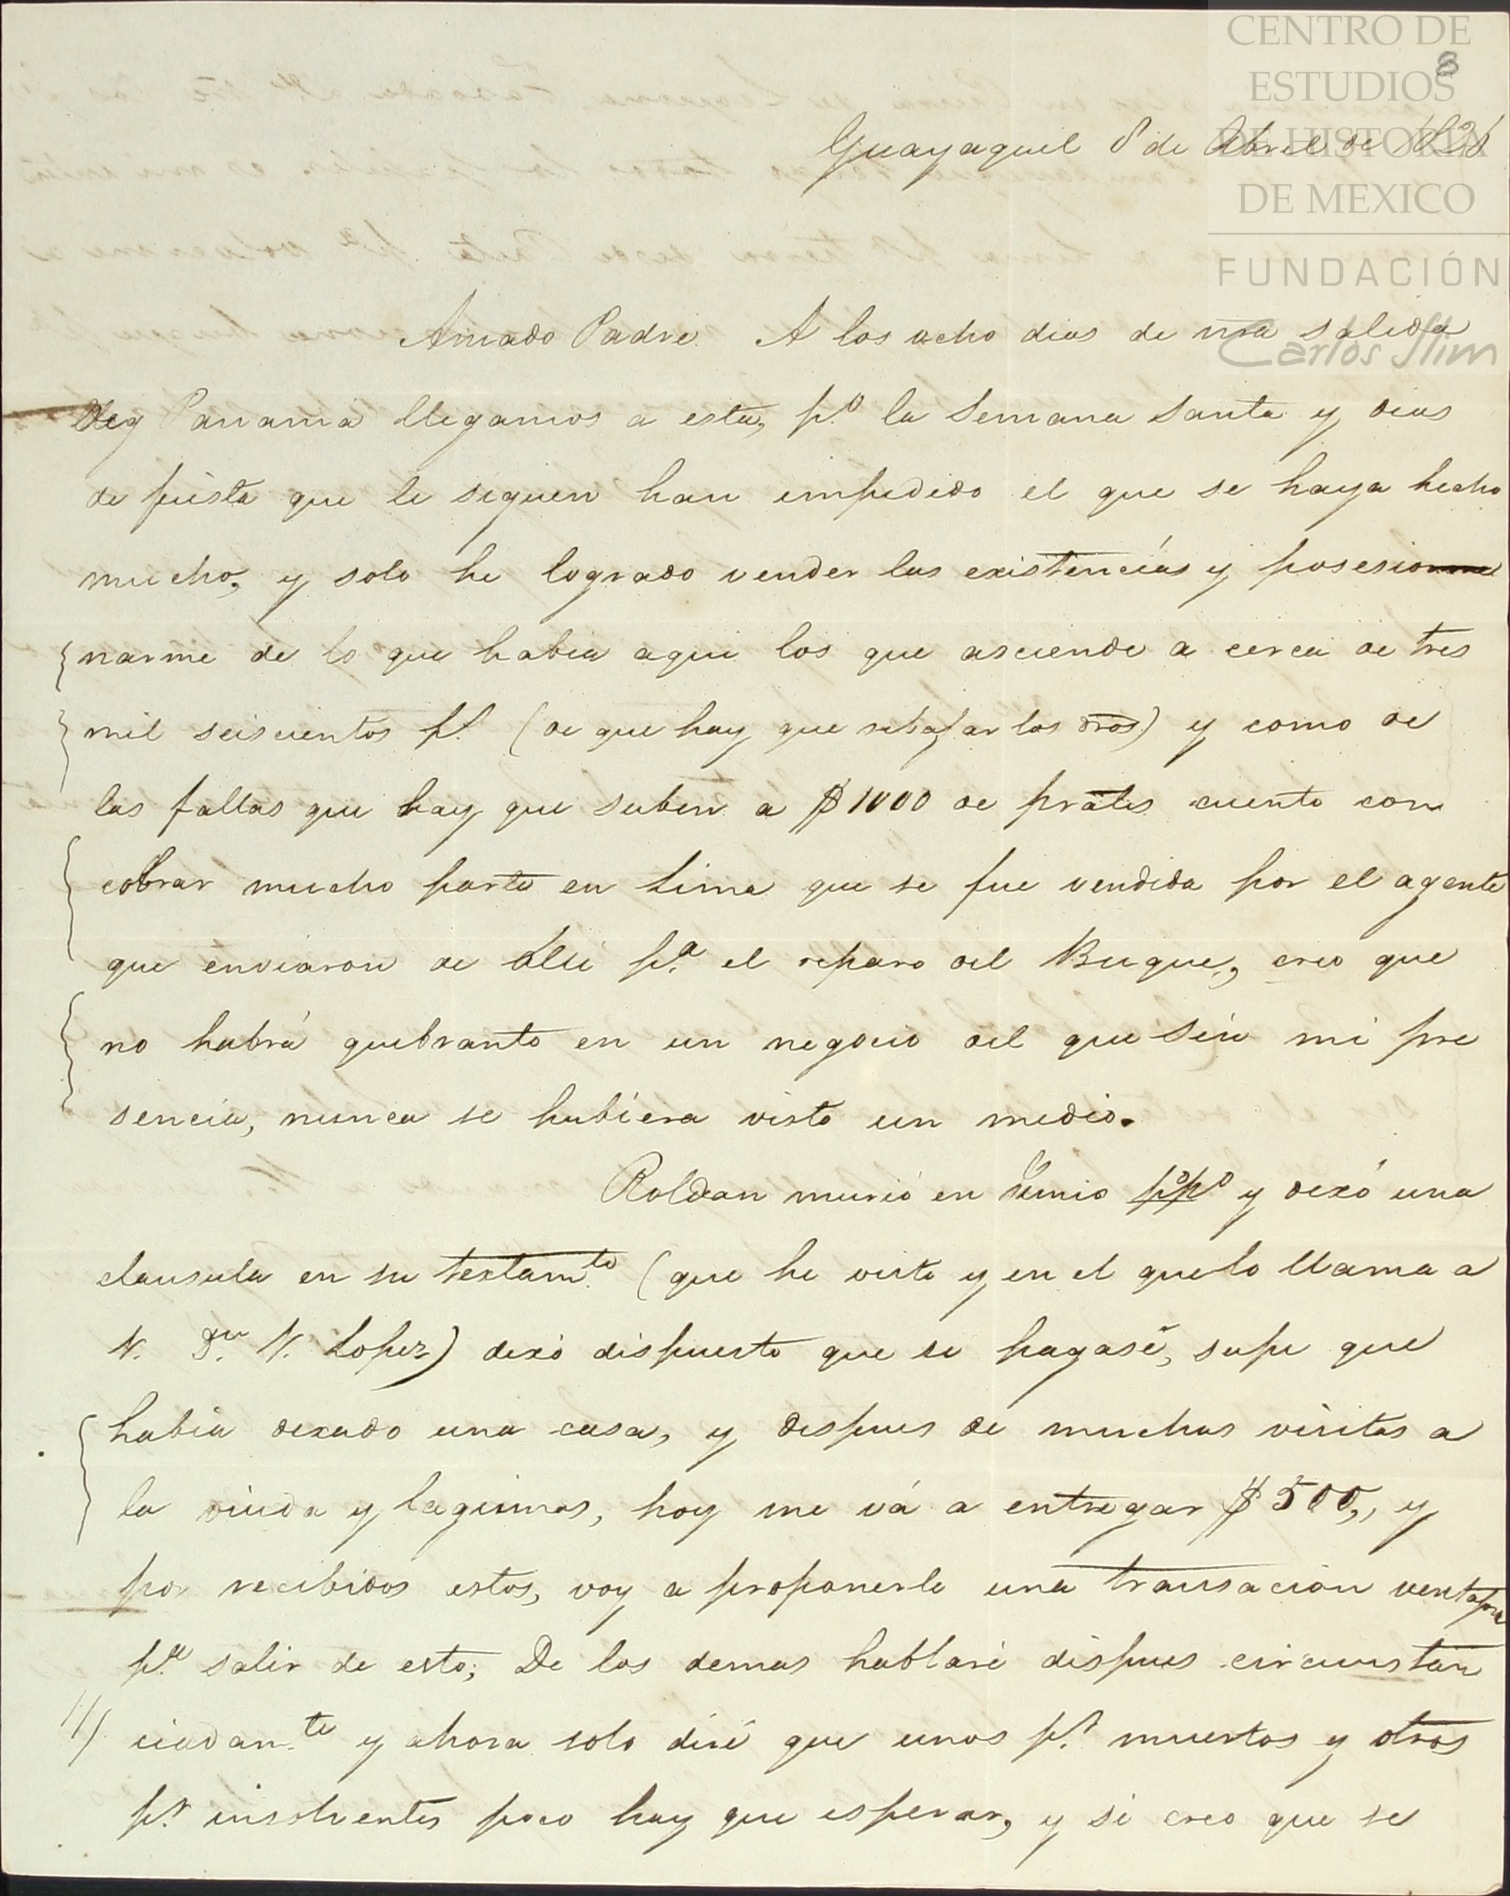 CENTRO DE
ESTUDIOS
DE HISTORIA
DE MEXICO
FUNDACIÓN
Carlos Slim
8
Guayaquil 8 de Abril de 1828
Amado Padre. A los ocho dias de nra salida
de Panamá llegamos a esta, p.º la Semana Santa y dias
de fiesta que le siguen han impedido el que se haya hecho
mucho, y solo he logrado vender las existencias y posesio
narme de lo que habia aqui los que asciende a cerca de tres
mil seiscientos p.s (de que hay que rebajar los dros) y como de
las fallas que hay que suben a $1000 de prales cuento con
cobrar mucho parte en Lima que se fue vendida por el agente
que enviaron de alli p.a el reparo del Buque, creo que
no habrá quebranto en un negocio del que sin mi pre
sencia, nunca se hubiera visto un medio.
Roldan murió en Junio pº pº y dexó una
clausula en su textam.to (que he visto y en el que lo llama a
V. Dn. N. Lopez) dexó dispuesto que se pagase, supe que
habia dexado una casa, y despues de muchas visitas a
la viuda y lagrimas, hoy me vá a entregar $500,, y
por recibidos estos, voy a proponerle una transacion ventajosa
p.a salir de esto; De los demas hablaré despues circunstan
ciadam.te y ahora solo diré que unos p.r muertos y otros
p.r insolventes poco hay que esperar, y si creo que se